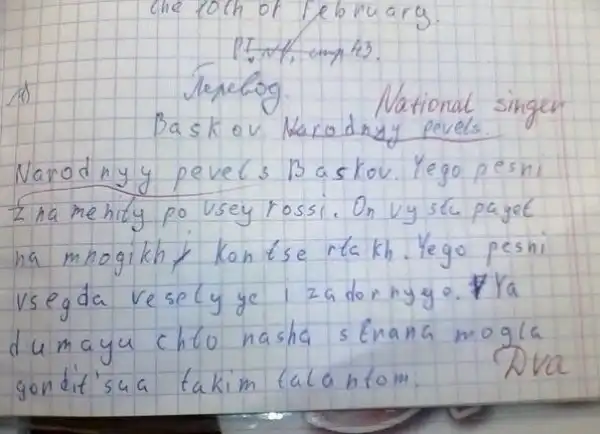 the 10th of February.
PI, №1, стр 43.
Перевод.
National singer
Baskov Narodnyy pevets.
Narodnyy pevets Baskov. Yego pesni
znamenity po vsey rossi. On vystupayet
na mnogikh kontsertakh. Yego pesni
vsegda veselyye i zadornyye. Ya
dumayu chto nasha strana mogla
gordit'sya takim talantom.
Dva